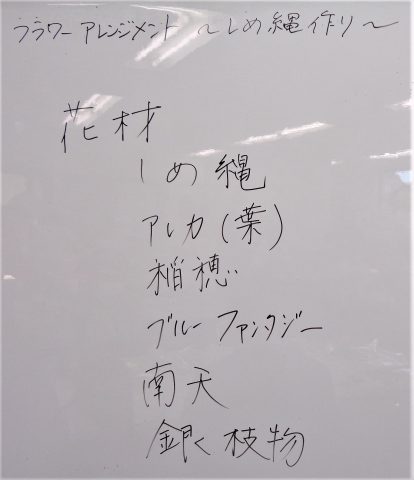 フラワーアレンジメント ～しめ縄作り～
花材
しめ縄
アレカ(葉)
稲穂
ブルーファンタジー
南天
銀枝物